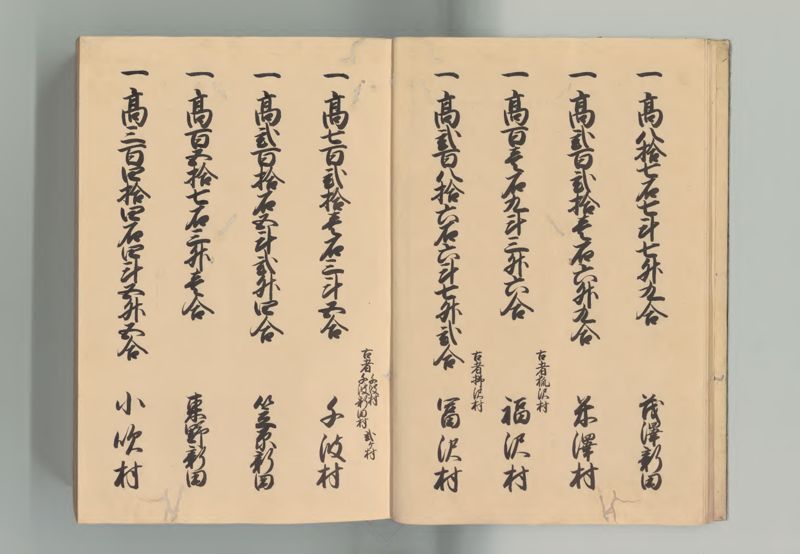 一 高八拾七石七斗七升九合 茂澤新田
一 高弐百弐拾壱石六升九合 米澤村
一 高百壱石九斗三升六合 古者
沢村 福沢村
一 高弐百八拾六石六斗七升弐合 古者柳沢村 冨沢村
一 高七百弐拾壱石三斗五合 古者千波村 千波新田村 弐ヶ村 千波村
一 高弐百拾石五斗弐升四合 笠原新田
一 高百五拾七石三升壱合 東野新田
一 高三百四拾四石四斗五升五合 小吹村